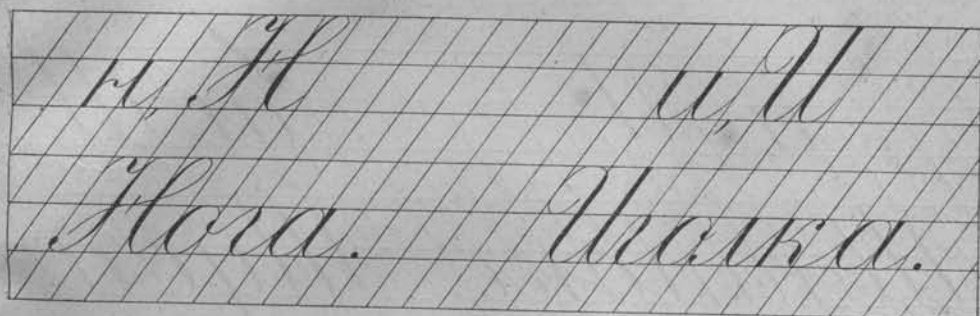 н, Н и, И
Нога. Иголка.